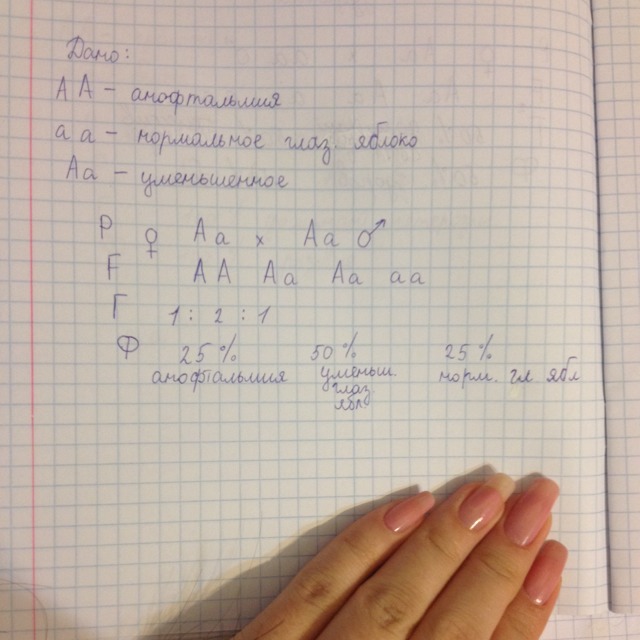 Дано:
АА – анофтальмия
аа – нормальное глаз. яблоко
Аа – уменьшенное
Р ♀ Аа х Аа ♂
F АА Аа Аа аа
Г 1 : 2 : 1
Ф 25 % 50 % 25 %
анофтальмия уменьш. норм. гл. ябл
глаз
ябл